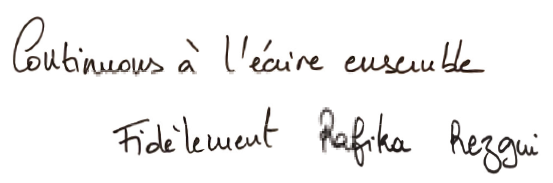 Continuons à l'écrire ensemble
Fidèlement Rafika Rezgui